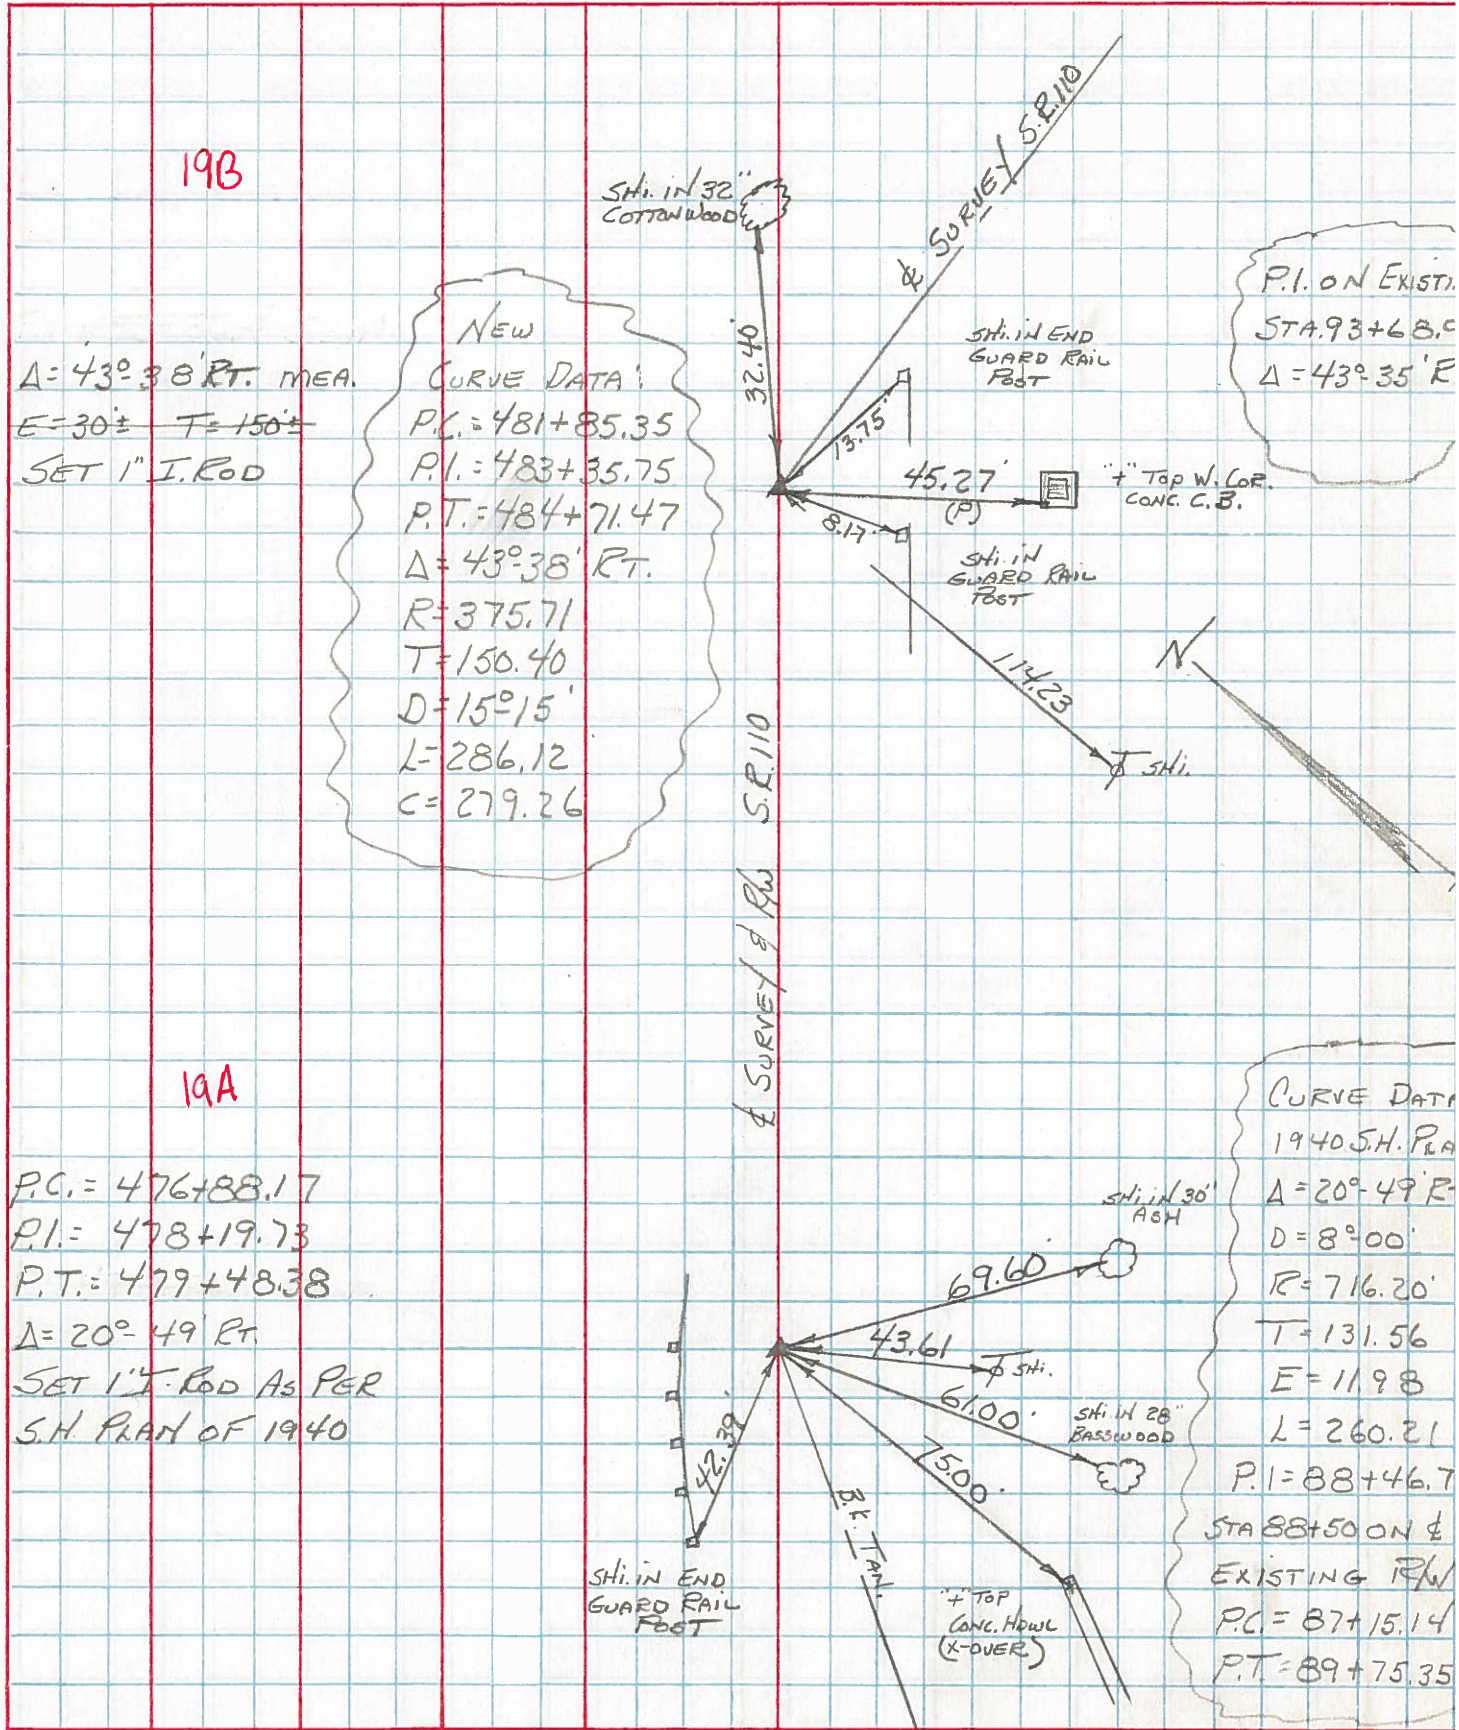 19B
Δ=43°-38' RT. MEA.
E=30'± T=150'±
SET 1" I. ROD
NEW
CURVE DATA:
P.C.=481+85.35
P.I.=483+35.75
P.T.=484+71.47
Δ=43°-38' RT.
R=375.71
T=150.40
D=15°-15'
L=286.12
C=279.26
SHI. IN 32"
COTTONWOOD
32.40'
℄ SURVEY S.R.110
SHI. IN END
GUARD RAIL
POST
13.75'
45.27'
(P)
"+" TOP W. COR.
CONC. C.B.
8.17'
SHI. IN
GUARD RAIL
POST
114.23
SHI.
N
P.I. ON EXISTI
STA.93+68.
Δ=43°-35' R
℄ SURVEY & R/W S.R.110
19A
P.C.=476+88.17
P.I.=478+19.73
P.T.=479+48.38
Δ=20°-49' RT.
SET 1" I-ROD AS PER
S.H. PLAN OF 1940
SHI. IN 30"
ASH
69.60'
43.61
SHI.
61.00'
SHI. IN 28"
BASSWOOD
75.00'
42.39'
SHI. IN END
GUARD RAIL
POST
B.K. TAN.
"+" TOP
CONC. HDWL
(X-OVER)
CURVE DATA
1940 S.H. PLA
Δ=20°-49' R
D=8°-00'
R=716.20'
T=131.56
E=11.98
L=260.21
P.I=88+46.7
STA 88+50 ON ℄
EXISTING R/W
P.C.=87+15.14
P.T.=89+75.35